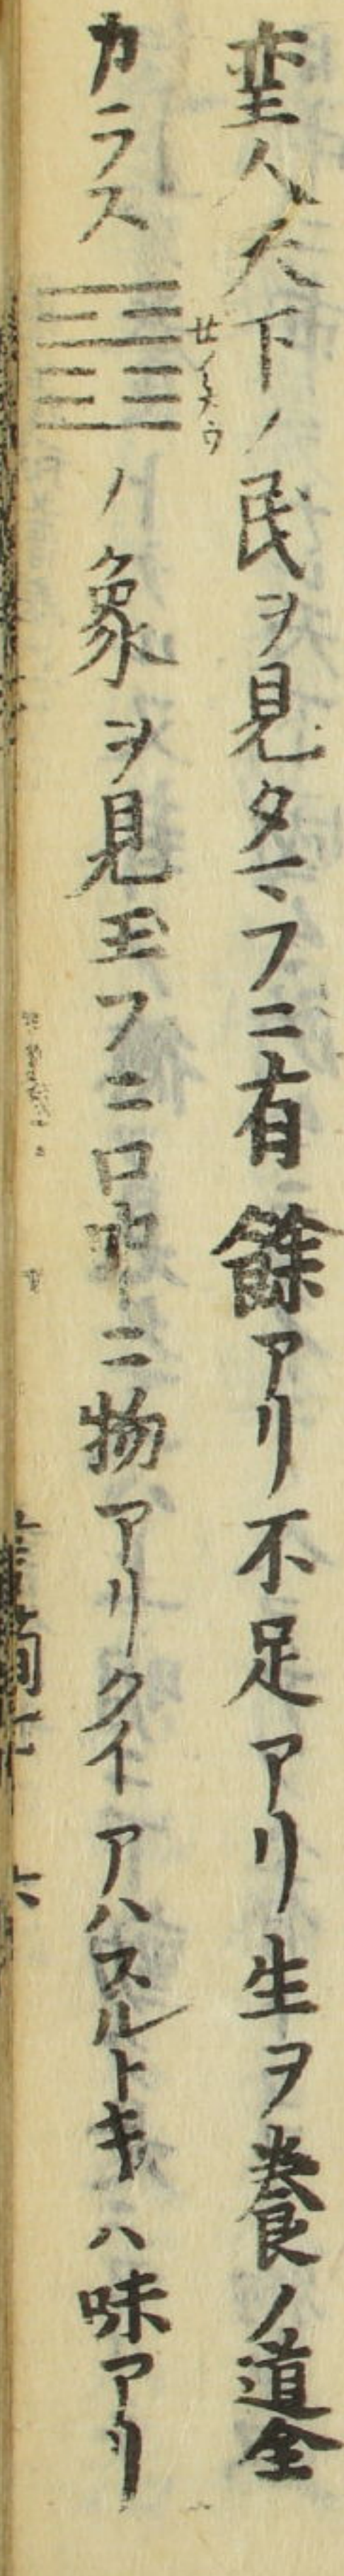 聖人天下ノ民ヲ見タマフニ有餘アリ不足アリ生ヲ養ノ道全
カラス䷔ノ象ヲ見玉フニ口中ニ物アリクイアハスルトキハ味アリ